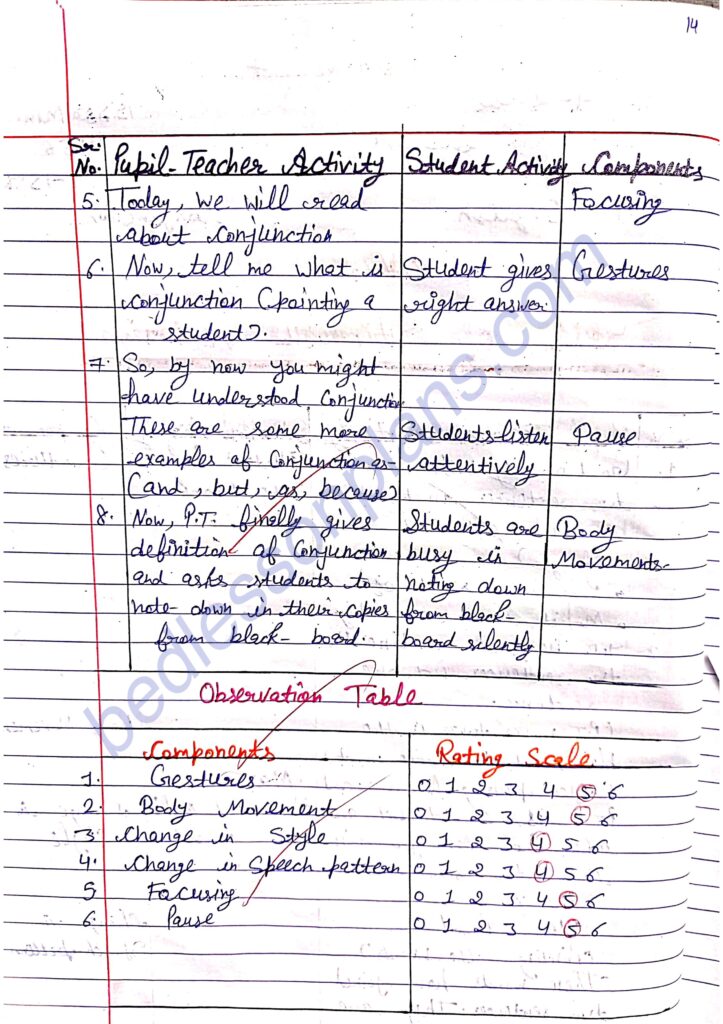 14
Sr. No. Pupil-Teacher Activity Student Activity Components
5. Today, we will read Focusing
about Conjunction
6. Now, tell me what is Student gives Gestures
conjunction (pointing a right answer.
student).
7. So, by now you might
have understood Conjunction
These are some more Students listen Pause
examples of Conjunction as- attentively
(and, but, as, because)
8. Now, P.T. finally gives Students are Body
definition of Conjunction busy in Movements.
and asks students to noting down
note-down in their copies from black-
from black-board. board silently
Observation Table
Components Rating Scale
1. Gestures 0 1 2 3 4 5 6
2. Body Movement 0 1 2 3 4 5 6
3 Change in Style 0 1 2 3 4 5 6
4. Change in Speech pattern 0 1 2 3 4 5 6
5 Focusing 0 1 2 3 4 5 6
6. Pause 0 1 2 3 4 5 6
bedlessonplans.com